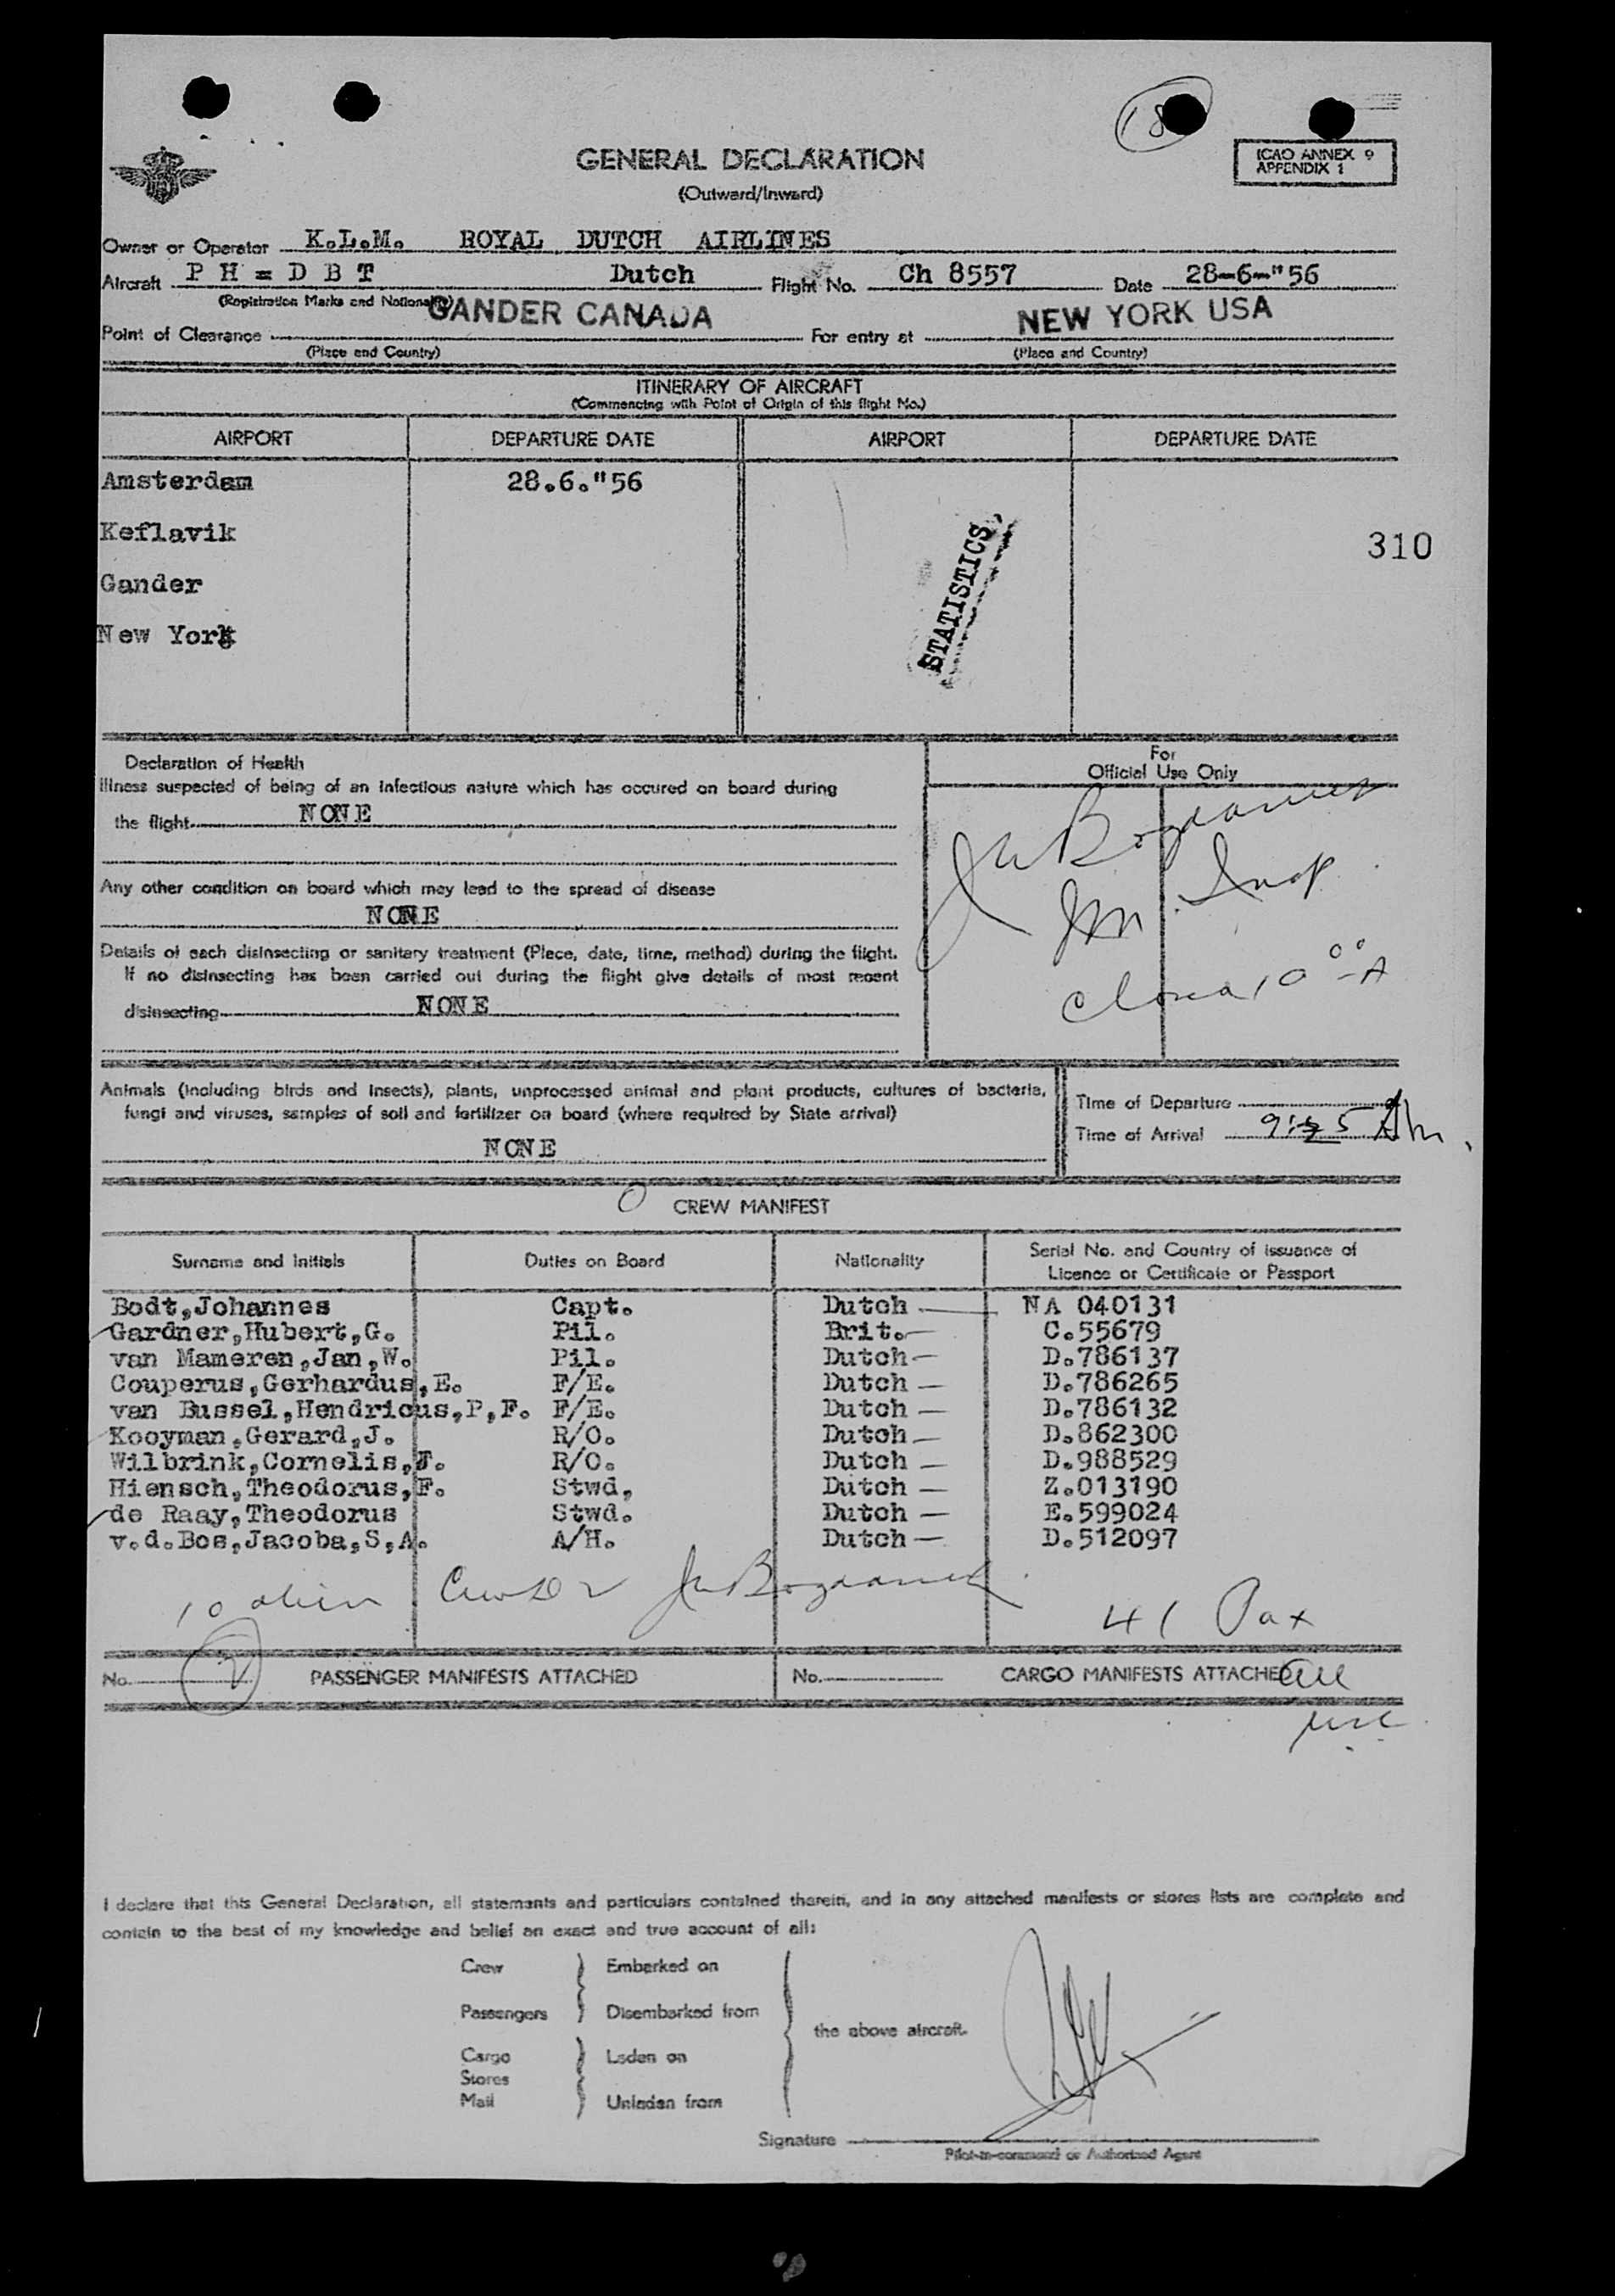 18
GENERAL DECLARATION
(Outward/Inward)
ICAO ANNEX 9
APPENDIX 1
Owner or Operator K.L.M. ROYAL DUTCH AIRLINES
Aircraft P H = D B T Dutch Flight No. Ch 8557 Date 28-6-"56
(Registration Marks and Nationality)
Point of Clearance GANDER CANADA For entry at NEW YORK USA
(Place and Country) (Place and Country)
ITINERARY OF AIRCRAFT
(Commencing with Point of Origin of this flight No.)
AIRPORT DEPARTURE DATE AIRPORT DEPARTURE DATE
Amsterdam 28.6."56
Keflavik
310
Gander
STATISTICS
New York
Declaration of Health
For
Official Use Only
Illness suspected of being of an infectious nature which has occured on board during
the flight NONE
Any other condition on board which may lead to the spread of disease
NONE
Details of each disinsecting or sanitary treatment (Place, date, time, method) during the flight.
If no disinsecting has been carried out during the flight give details of most recent
disinsecting NONE
Im. Insp.
10 00 A
Animals (including birds and insects), plants, unprocessed animal and plant products, cultures of bacteria,
fungi and viruses, samples of soil and fertilizer on board (where required by State arrival)
NONE
Time of Departure
Time of Arrival
CREW MANIFEST
Surname and Initials Duties on Board Nationality Serial No. and Country of issuance of
Licence or Certificate or Passport
Bodt,Johannes Capt. Dutch NA 040131
Gardner,Hubert,G. Pil. Brit. C.55679
van Mameren,Jan,W. Pil. Dutch D.786137
Couperus,Gerhardus,E. F/E. Dutch D.786265
van Bussel,Hendricus,P,F. F/E. Dutch D.786132
Kooyman,Gerard,J. R/O. Dutch D.862300
Wilbrink,Cornelis,J. R/O. Dutch D.988529
Hiensch,Theodorus,F. Stwd, Dutch Z.013190
de Raay,Theodorus Stwd. Dutch E.599024
v.d.Bos,Jacoba,S,A. A/H. Dutch D.512097
10 alien Crew
41 Pax
No. 2 PASSENGER MANIFESTS ATTACHED No. CARGO MANIFESTS ATTACHED
I declare that this General Declaration, all statements and particulars contained therein, and in any attached manifests or stores lists are complete and
contain to the best of my knowledge and belief an exact and true account of all:
Crew Embarked on
Passengers Disembarked from
the above aircraft.
Cargo Laden on
Stores
Mail Unladen from
Signature
Pilot-in-command or Authorized Agent